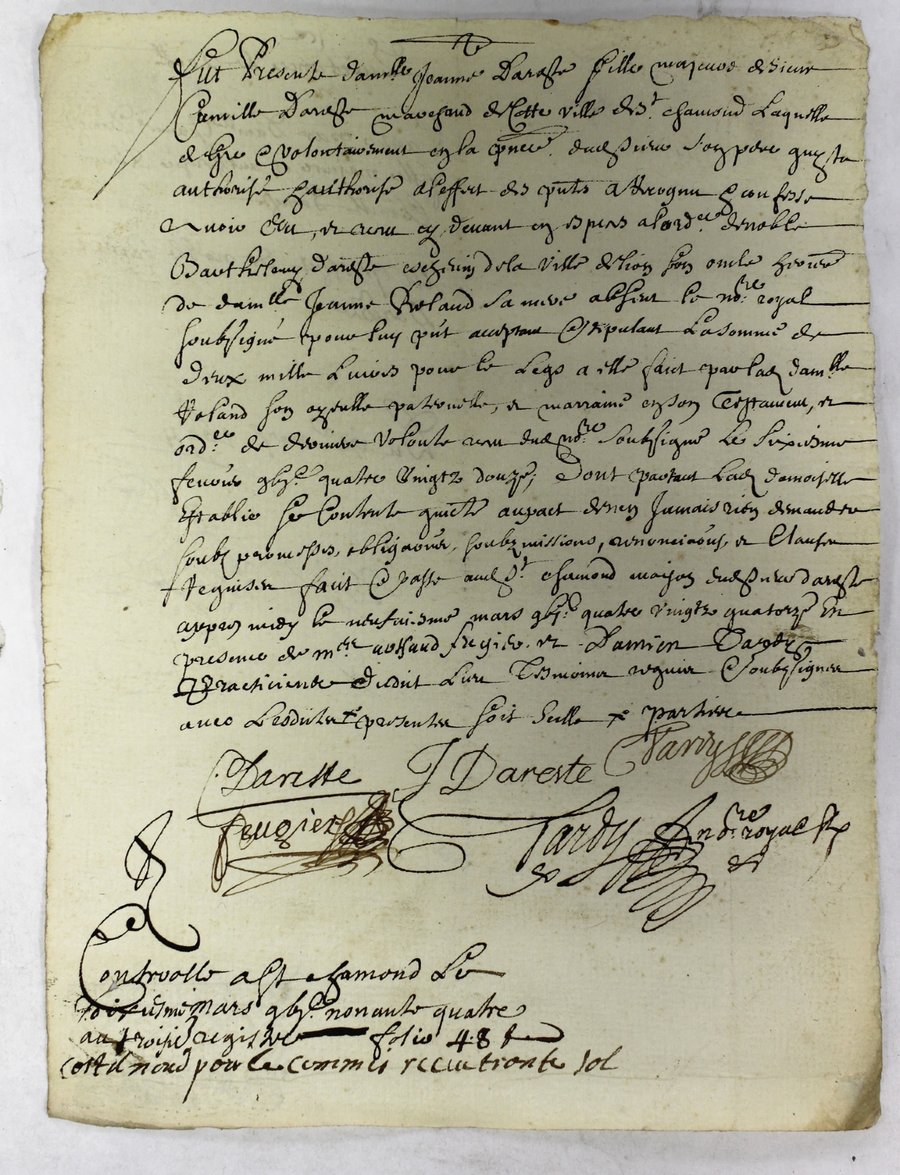 Fut Presente dam.lle Jeanne Dareste fille majeure de Sieur
Camille Dareste marchand de Cette ville de S.t chamond Laquelle
de gre & volontairement en la p̃nce dud Sieur Son pere quy la
authorise & authorise a leffect des p̃nts a Recognu & confesse
Avoir Eu, et receu cy devant en especes a lord.re de noble
Barthelemy dareste eschevin de la ville de lion son oncle heritier
de dam.lle Jeanne Roland sa mere absent le no.re royal
soubsigné pour luy p̃nt acceptant & stipulant La somme de
deux mille Livres pour le Legs a elle faict par lad dam.lle
Roland son ayeulle paternelle, et marraine en son Testament, et
ord.ce de derniere volonte receu dud no.re soubsigne Le Sixiesme
febvrier gbj.c quatre vingtz douze, Dont partant Lad damoiselle
Establie se Contente quicte au pact de n'en Jamais rien demander
soubz promesses, obligaons, soubzmissions, renonciaons, et Clauses
Requises faict & passe aud S.t chamond maison dud Sieur dareste
apres midy le neufiesme mars gbj.c quatre vingtz quatorze En
presence de m.tre feugier et Damien Tardy
Practiciens dudit Lieu Tesmoins requis & soubsignes
avec Lesdites presentes soit seelle parties
Dareste J Dareste Tardy
feugier Tardy no.re royal
Controlle a S.t chamond Le
mars gbj.c nonante quatre
au trois.e registre folio 48
cottd nond pour le commis receu trente sol